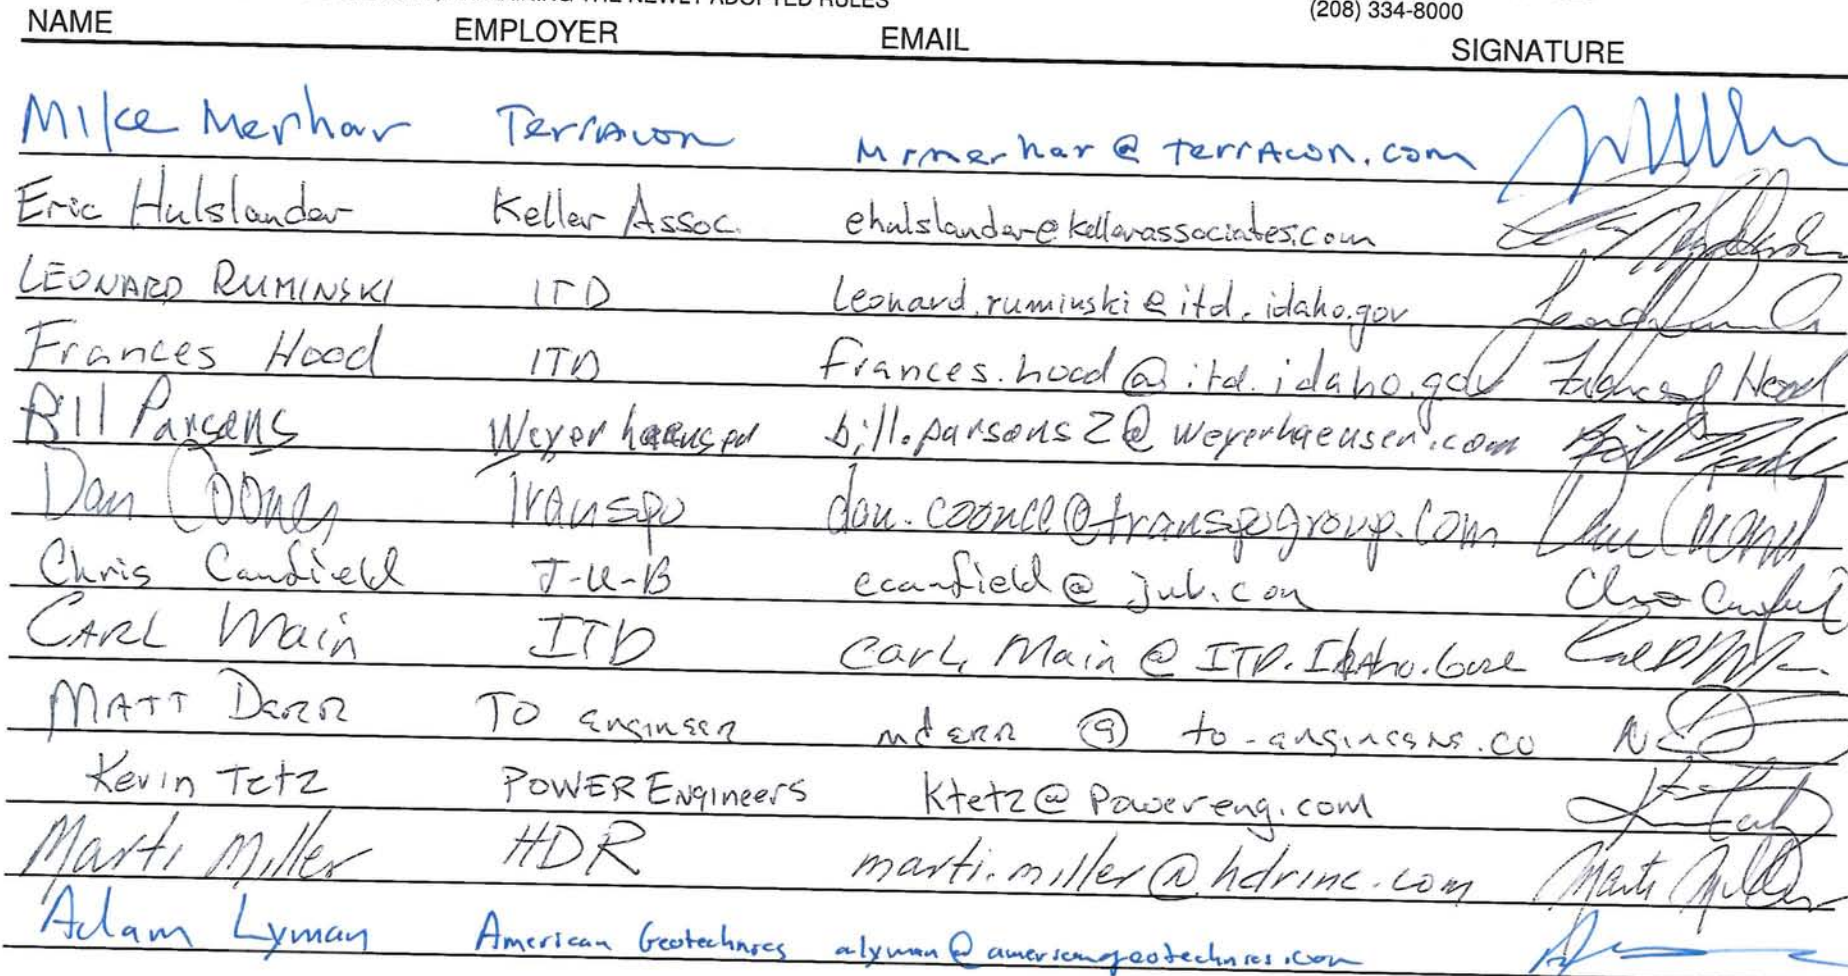 THE NEWLY ADOPTED RULES
(208) 334-8000
NAME EMPLOYER EMAIL SIGNATURE
Mike Merhar Terracon mrmerhar@terracon.com
Eric Hulslander Keller Assoc. ehulslander@kellerassociates.com
LEONARD RUMINSKI ITD leonard.ruminski@itd.idaho.gov
Frances Hood ITD frances.hood@itd.idaho.gov Frances Hood
Bill Parsons Weyerhaeuser bill.parsons2@weyerhaeuser.com
Dan Transpo
Chris Canfield J-U-B ecanfield@jub.com
CARL Main ITD Carl.Main@ITD.Idaho.Gov
MATT Derr TO Engineer mderr@to-engineers.co
Kevin Tetz POWER Engineers Ktetz@Powereng.com
Marti Miller HDR marti.miller@hdrinc.com Marti Miller
Adam Lyman American Geotechnics alyman@americangeotechnics.com